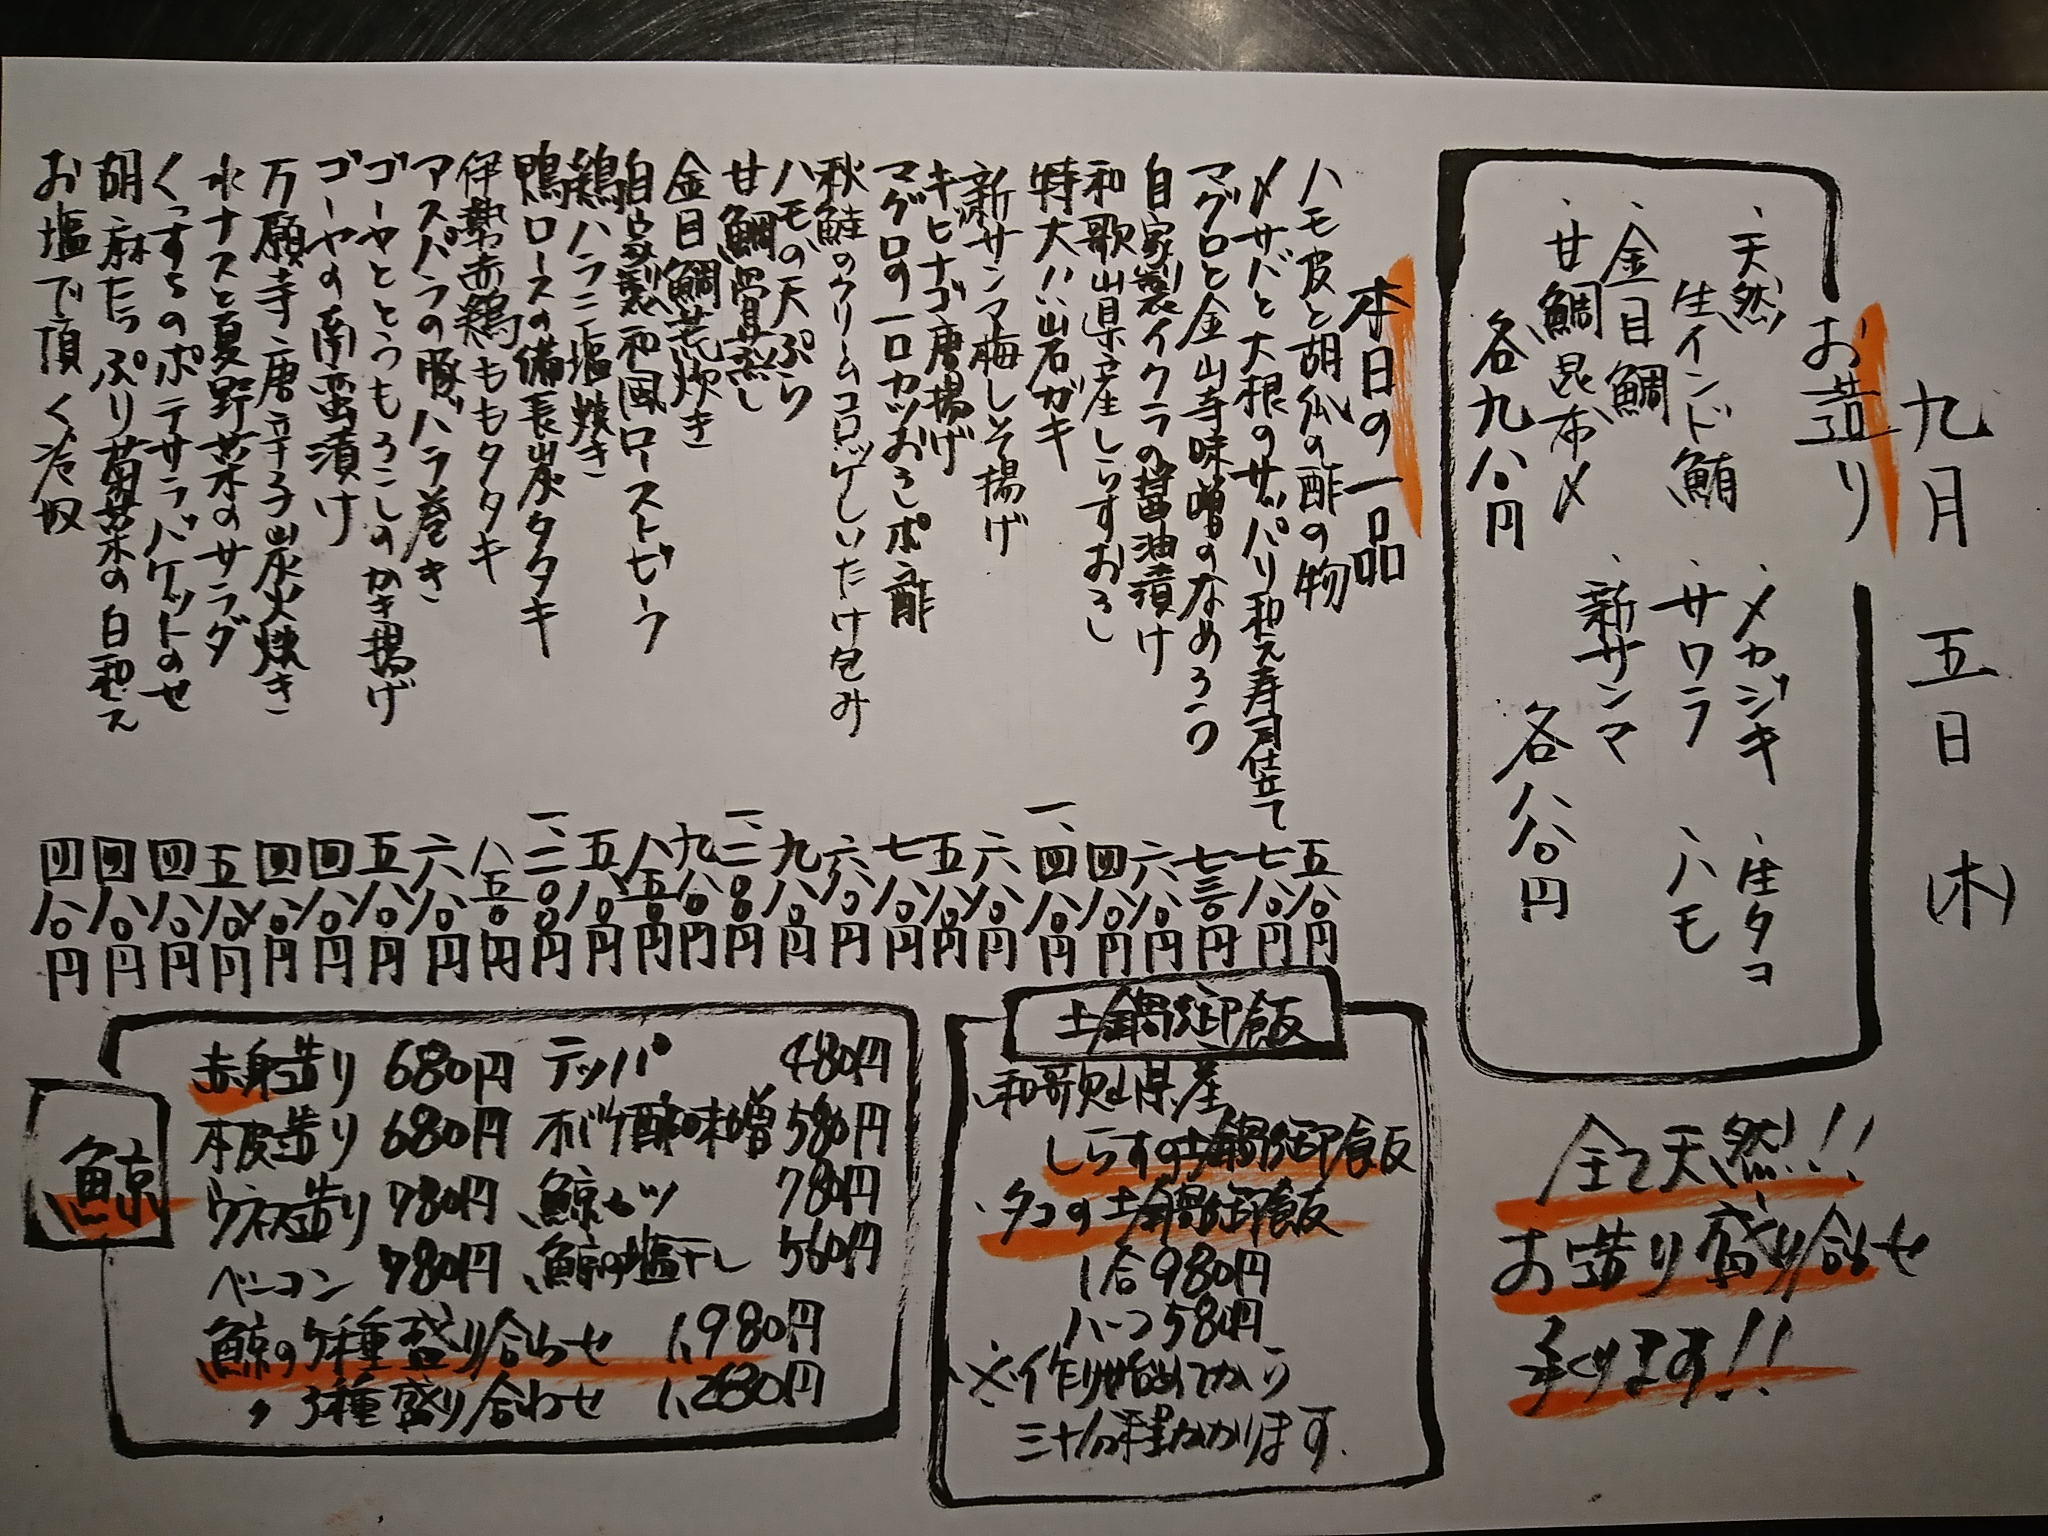 九月五日(木)
お造り
、天然
生インド鮪
、金目鯛
、甘鯛昆布〆
各九八〇円
、メカジキ
、サワラ
、新サンマ
、生タコ
、ハモ
各八八〇円
全て天然!!
お造り盛り合せ
承ります!!
本日の一品
ハモ皮と胡瓜の酢の物 五八〇円
〆サバと大根のサッパリ和え寿司仕立て 七八〇円
マグロと金山寺味噌のなめろう 七三〇円
自家製イクラの醤油漬け 六八〇円
和歌山県産しらすおろし 四八〇円
特大!!岩ガキ 一、四八〇円
新サンマ梅しそ揚げ 六八〇円
キビナゴ唐揚げ 五八〇円
マグロの一口カツおろしポン酢 七八〇円
秋鮭のクリームコロッケしいたけ包み 六八〇円
ハモの天ぷら 九八〇円
甘鯛骨蒸し 一、二〇〇円
金目鯛荒炊き 九八〇円
自家製和風ローストビーフ 八五〇円
鶏ハラミ塩焼き 五八〇円
鴨ロースの備長炭タタキ 一、二〇〇円
伊勢赤鶏ももタタキ 八五〇円
アスパラの豚バラ巻き 六八〇円
ゴーヤととうもろこしのかき揚げ 五八〇円
ゴーヤの南蛮漬け 四八〇円
万願寺唐辛子炭火焼き 四八〇円
水ナスと夏野菜のサラダ 五八〇円
くっすちのポテサラバケットのせ 四八〇円
胡麻たっぷり菊菜の白和え 四八〇円
お塩で頂く冷奴 四八〇円
土鍋御飯
、和歌山県産
しらすの土鍋御飯
、タコの土鍋御飯
1合980円
ハーフ580円
※作り始めてから
三十分程かかります.
鯨
赤身造り 680円 テッパ 480円
本皮造り 680円 オバケ酢味噌 580円
ウネス造り 780円 鯨カツ 780円
ベーコン 780円 鯨の塩干し 560円
鯨の5種盛り合わせ 1,980円
〃 3種盛り合わせ 1,280円